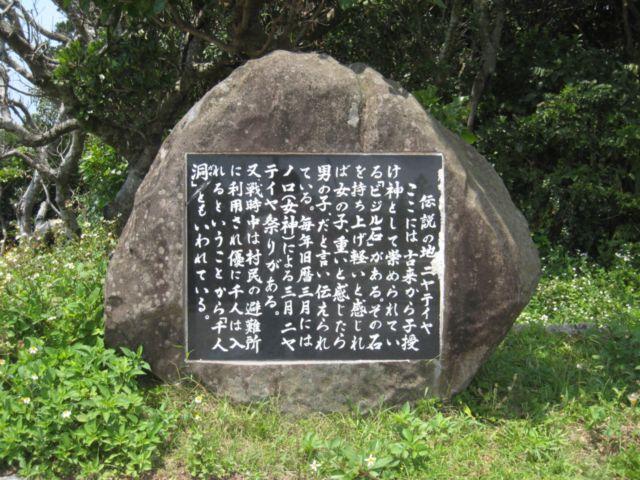 伝説の地ニヤテイヤ
ここには古来から子授
け神として崇められてい
る「ビジル石」がある。その石
を持ち上げ軽いと感じれ
ば女の子、重いと感じたら
男の子、だと言い伝えられ
ている。毎年旧暦三月には
ノロ(女神)による三月ニヤ
テイヤ祭りがある。
又戦時中は村民の避難所
に利用され優に千人は入
れるということから「千人
洞」ともいわれている。